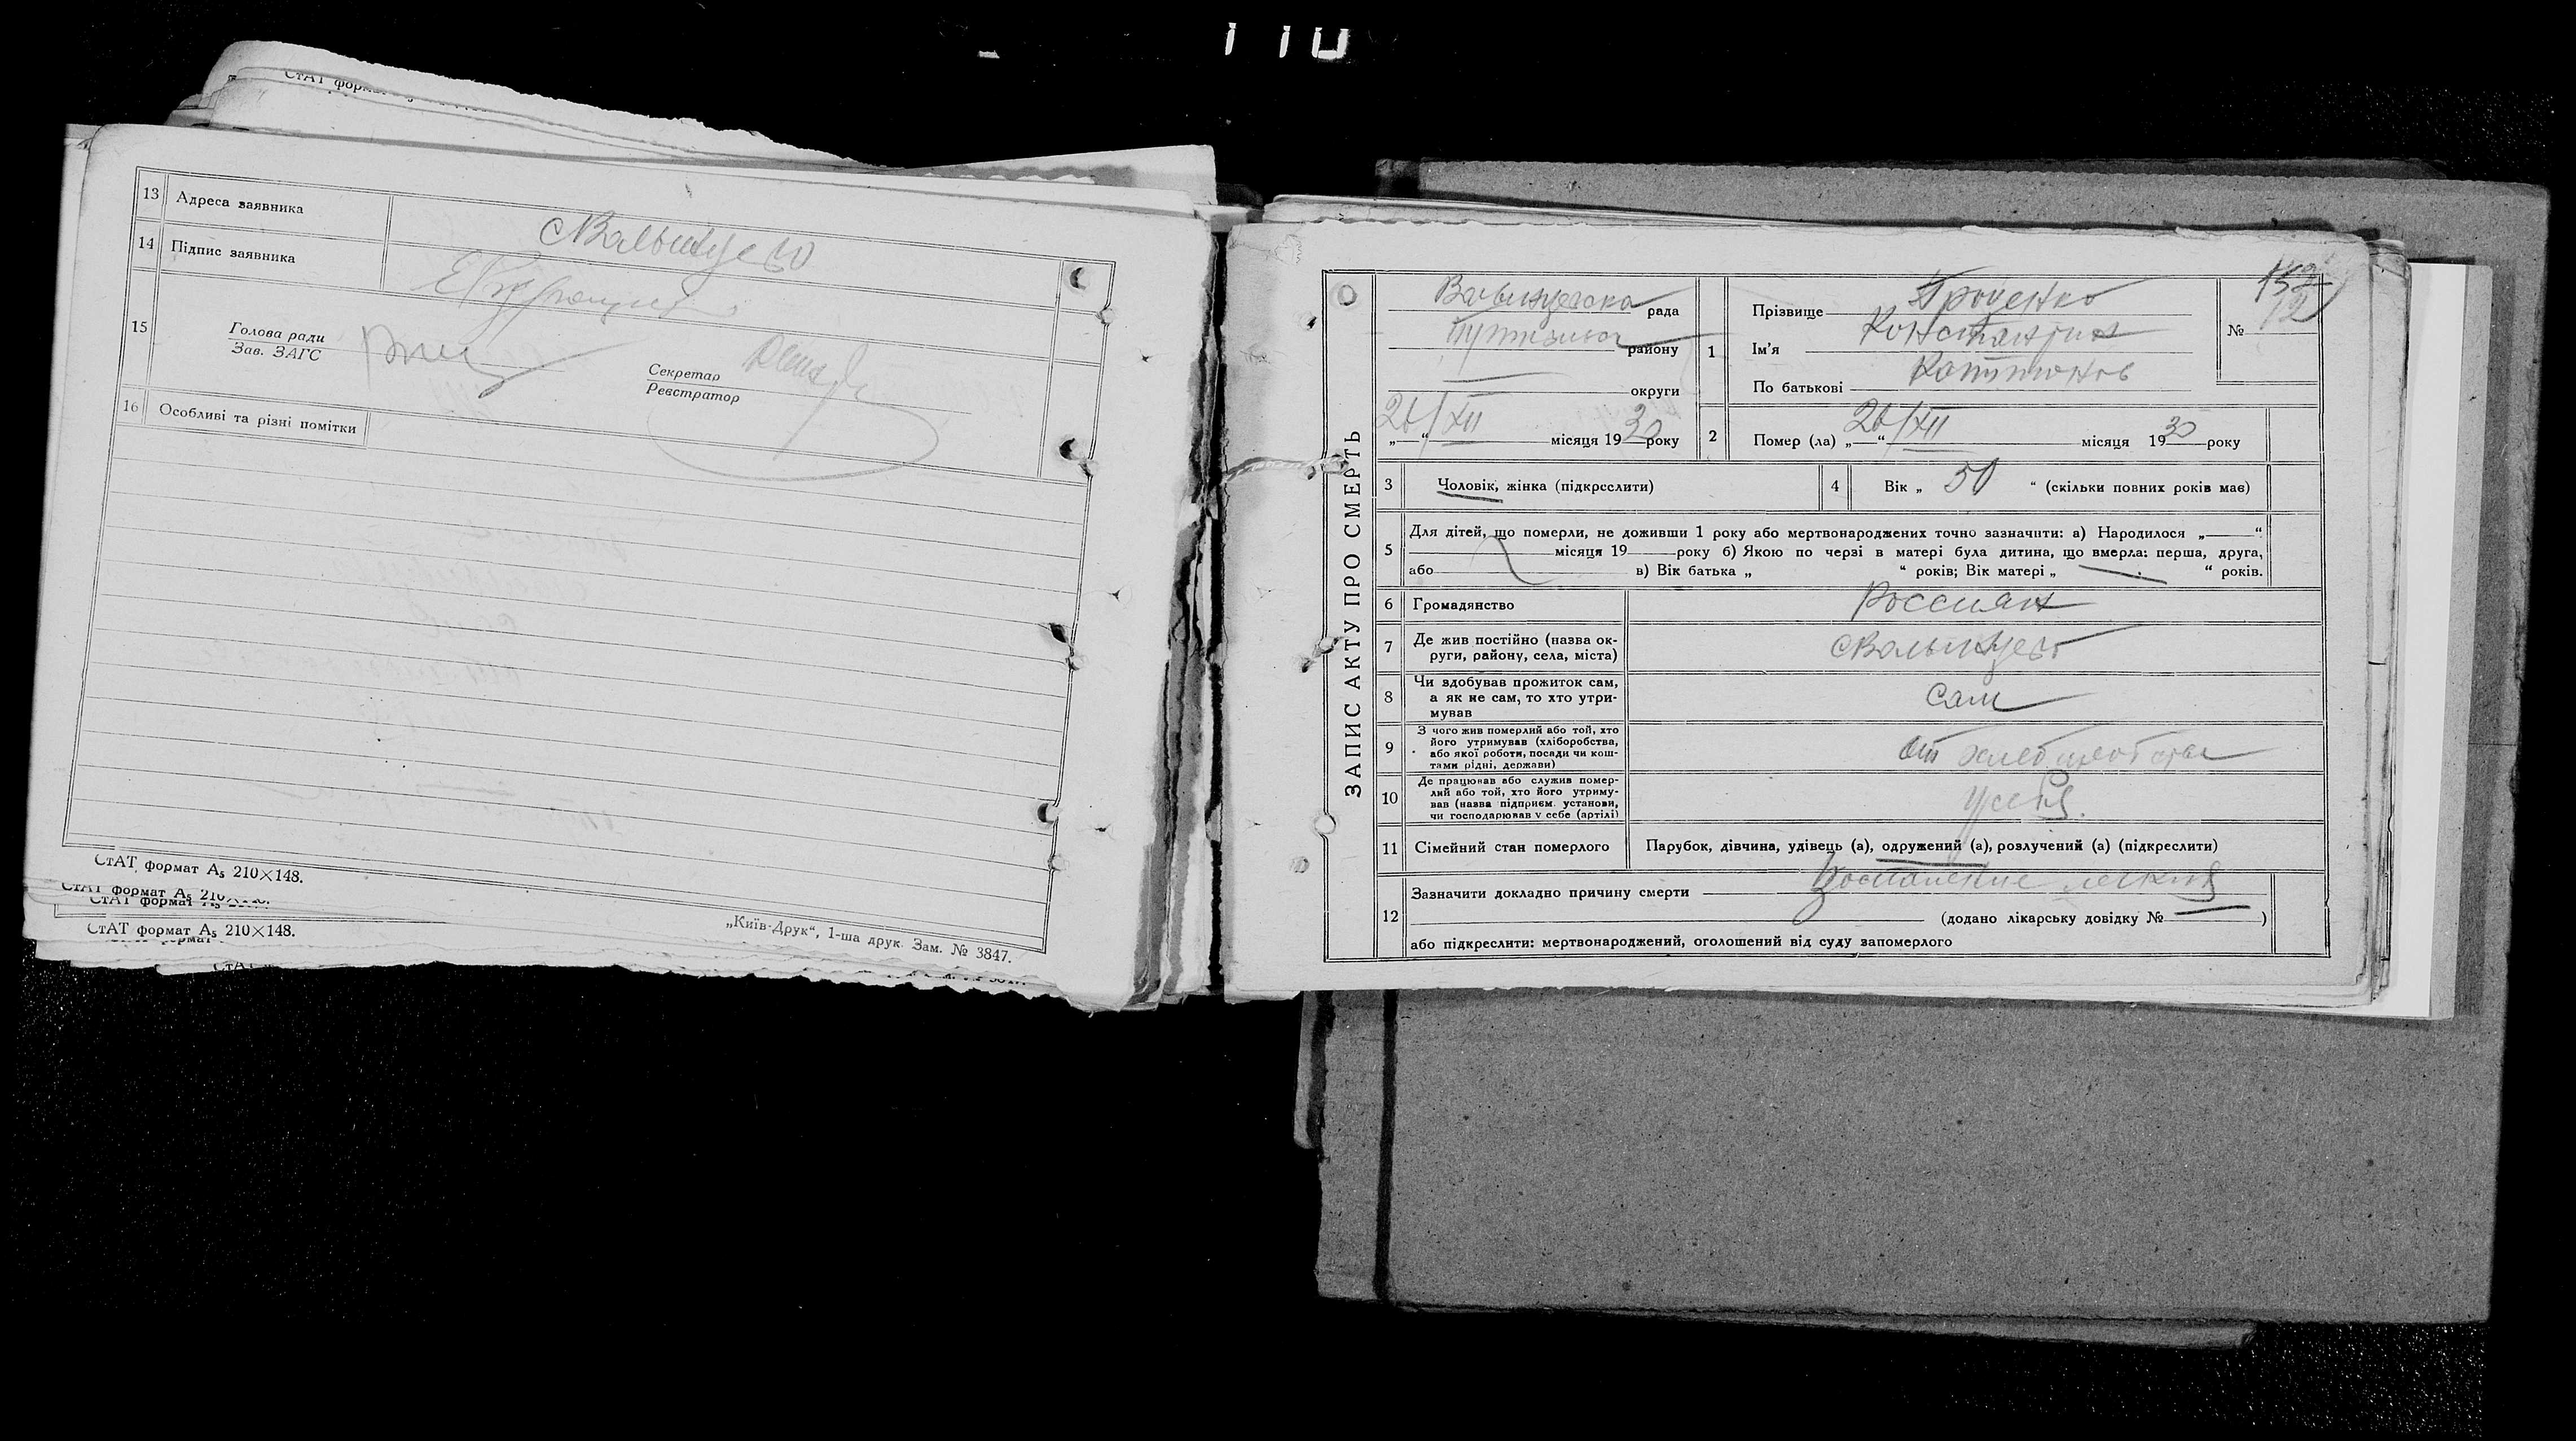 СтАТ
13 Адреса заявника
14 Підпис заявника
15 Голова ради
Зав. ЗАГС
Секретар
Реєстратор
16 Особливі та різні помітки
СтАТ формат А₅ 210×148.
СтАТ формат А₅
СтАТ формат
СтАТ формат А₅ 210×148.
„Київ-Друк“, 1-ша друк. Зам. № 3847.
ЗАПИС АКТУ ПРО СМЕРТЬ
рада
району
округи
26/XII місяця 1930 року
1 Прізвище Проценко
Ім'я Константин
По батькові
№ 152
12
2 Помер (ла) „26/XII місяця 1930 року
3 Чоловік, жінка (підкреслити)
4 Вік „ 50 “ (скільки повних років має)
5 Для дітей, що померли, не доживши 1 року або мертвонароджених точно зазначити: а) Народилося „ “
місяця 19 року б) Якою по черзі в матері була дитина, що вмерла: перша, друга,
або в) Вік батька „ “ років; Вік матері „ “ років.
6 Громадянство Россиян
7 Де жив постійно (назва ок-
руги, району, села, міста)
8 Чи здобував прожиток сам,
а як не сам, то хто утри-
мував
Сам
9 З чого жив померлий або той, хто
його утримував (хліборобства,
або якої роботи, посади чи кош-
тами рідні, держави)
от
10 Де працював або служив помер-
лий або той, хто його утриму-
вав (назва підприєм. установи,
чи господарював у себе (артілі)
у себя.
11 Сімейний стан померлого Парубок, дівчина, удівець (а), одружений (а), розлучений (а) (підкреслити)
12 Зазначити докладно причину смерти легких
(додано лікарську довідку № )
або підкреслити: мертвонароджений, оголошений від суду запомерлого